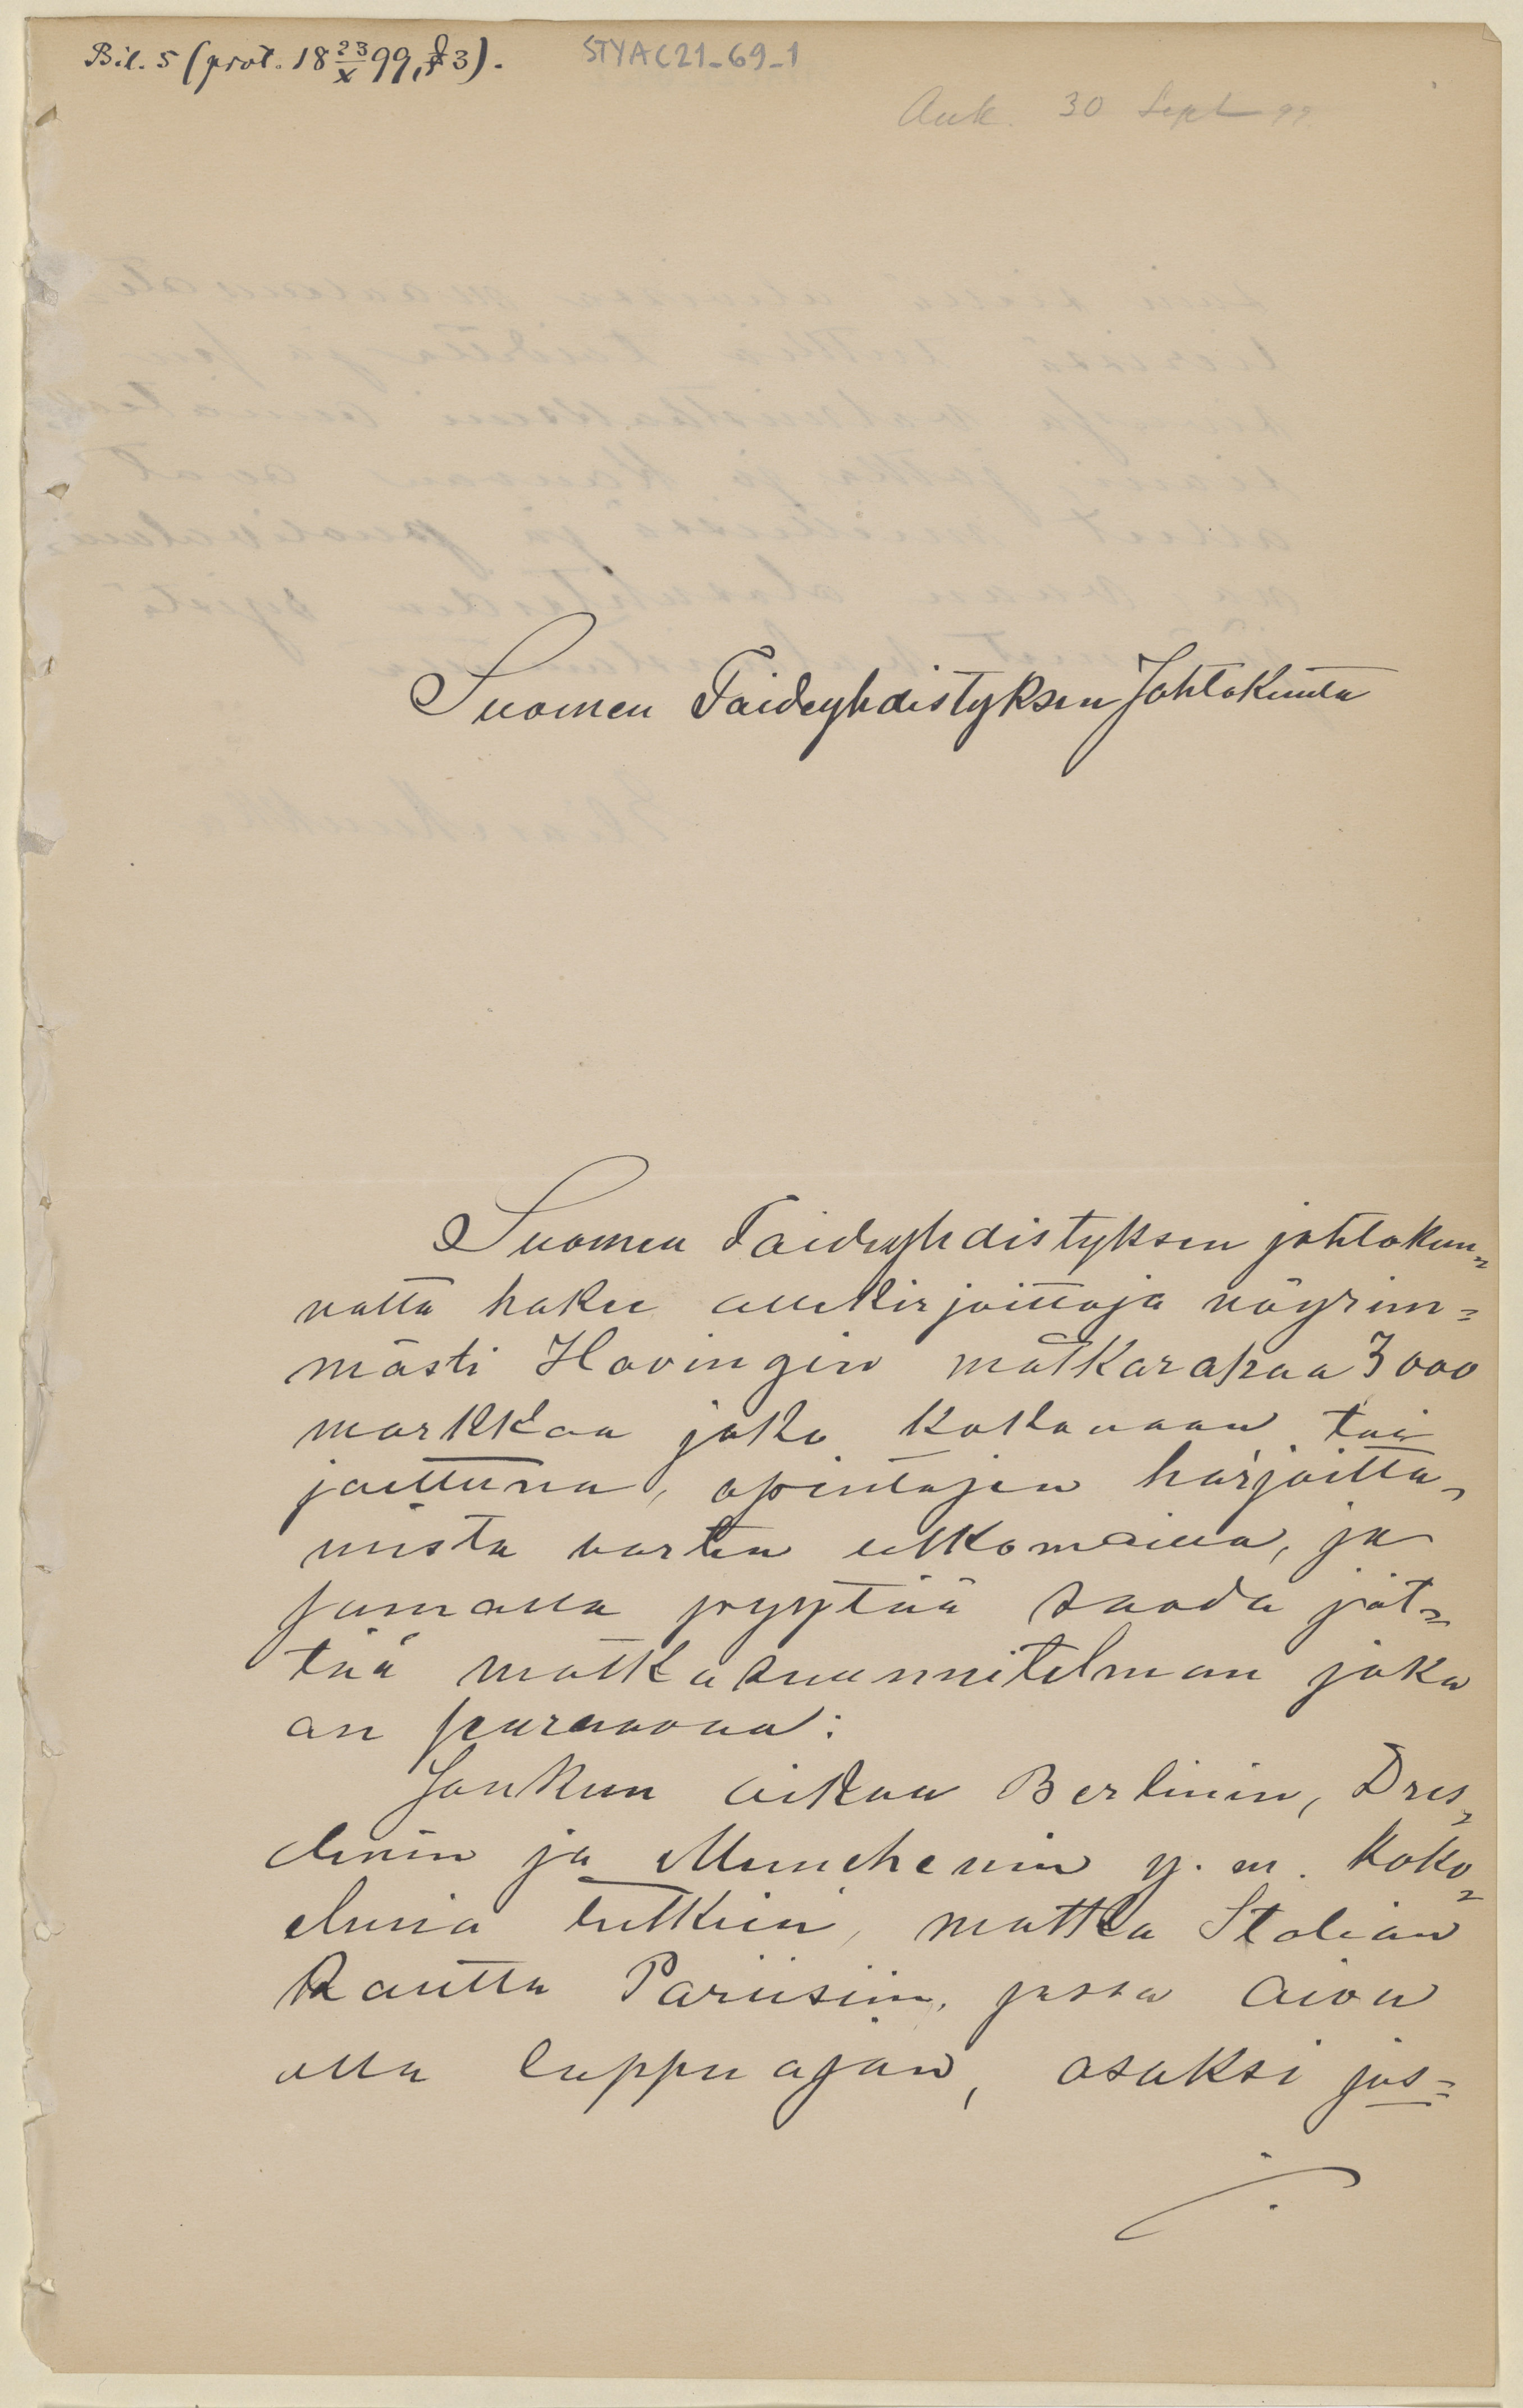 Bil. 5 (prot. 18 23/X 99, § 3).
STYA C21_69_1
Ank. 30 Sept 99.
Suomen Taideyhdistyksen Johtokunta
Suomen Taideyhdistyksen johtokun=
nalta hakee allekirjoittaja nöyrim=
mästi Hovingin matkarahaa 3000
markkaa joko kokonaan tai
jaettuna, opintojen harjoitta=
mista varten ulkomailla, ja
samalla pyytää saada jät=
tää matkasuunnitelman joka
on seuraava:
Jonkun aikaa Berlinin, Dres=
denin ja Munchenin y. m. koko=
elmia tutkien, matka Italian
kautta Pariisiin, jossa aion
olla loppu ajan, osaksi jos=